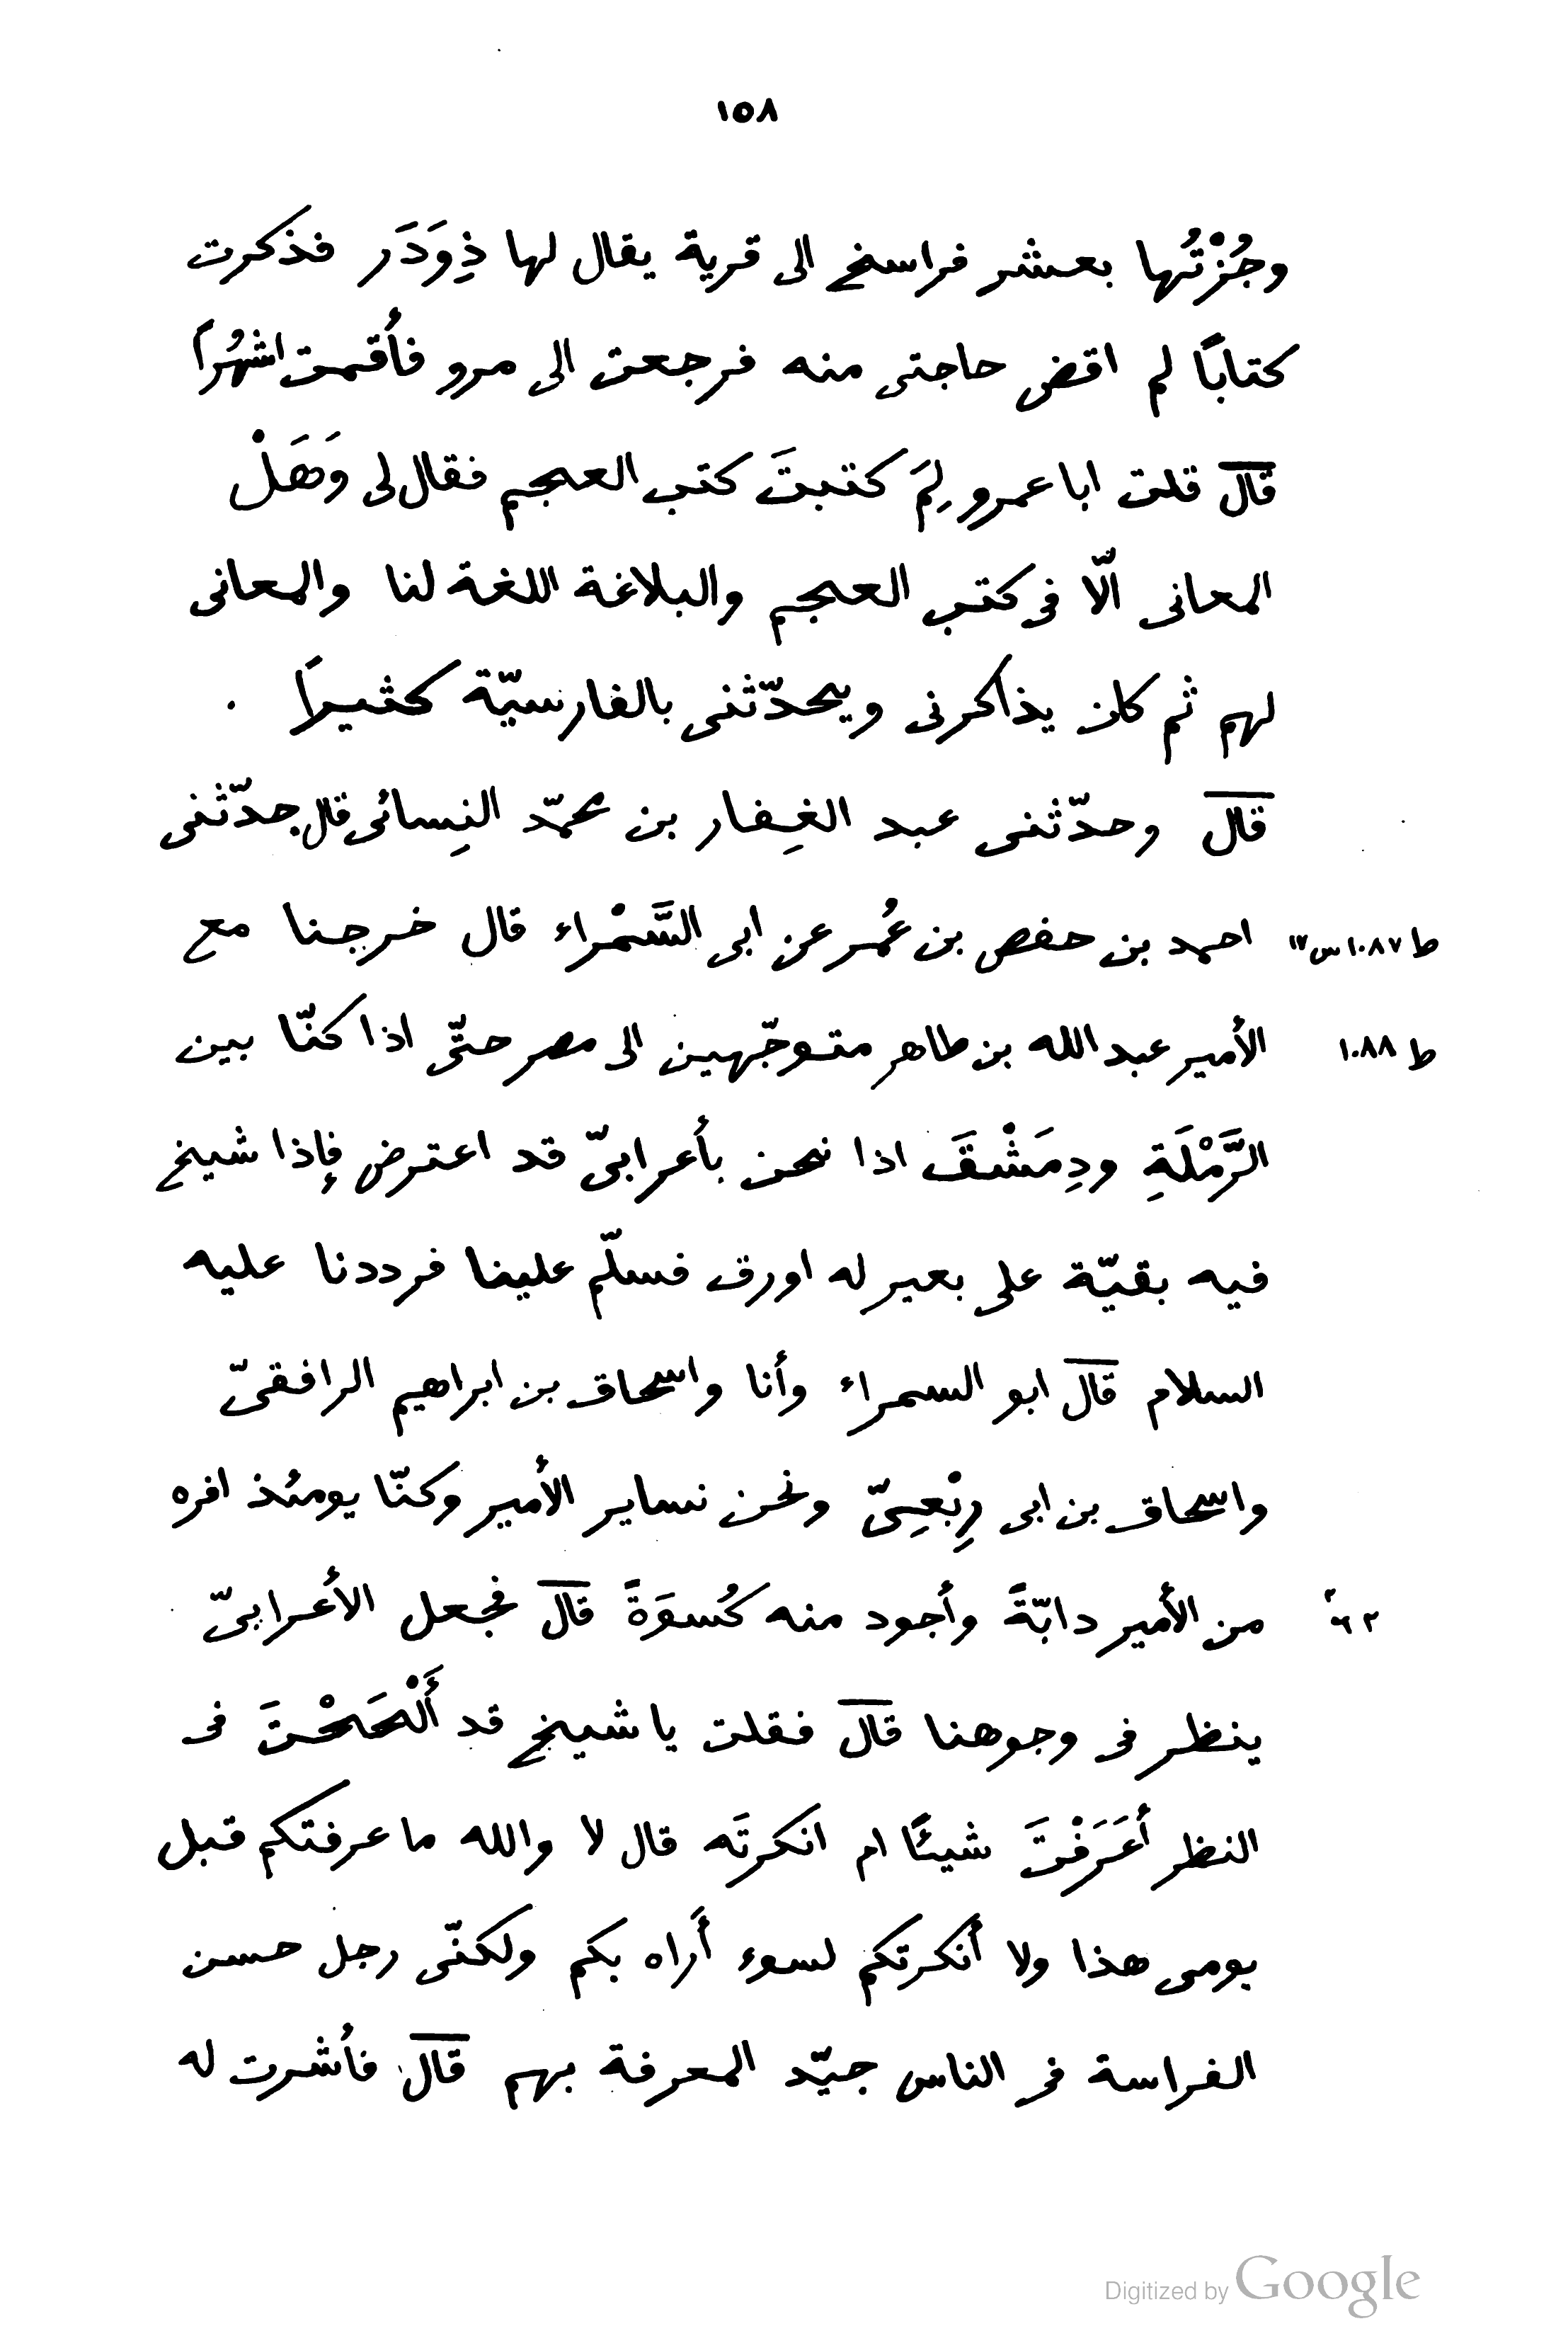 ١٥٨
وجُزْتُها بعشر فراسخ الى قرية يقال لها ذِوَدَر فذكرت
كتابًا لم اقض حاجتى منه فرجعت الى مرو فأقمت اشهُرًا
قال قلت ابا عمرو لِمَ كتبتَ كتب العجم فقال لى وَهَلْ
المعانى الّا فى كتب العجم والبلاغة اللغة لنا والمعانى
لهم ثم كان يذاكرنى ويحدّثنى بالفارسيّة كثيرًا .
قال وحدّثنى عبد الغِفار بن محمّد النِسائى قال حدّثنى
احمد بن حفص بن عُمر عن ابى السَّمْراء قال خرجنا مع ط ١٠٨٧ س ١٢
الأمير عبد الله بن طاهر متوجّهين الى مصر حتّى اذا كنّا بين ط ١٠٨٨
الرَّمْلَةِ ودِمَشْقَ اذا نحن بأعرابىّ قد اعترض فإذا شيخ
فيه بقيّة على بعير له اورق فسلّم علينا فرددنا عليه
السلام قال ابو السمراء وأنا واسحاق بن ابراهيم الرافقىّ
واسحاق بن ابى رِبْعِىّ ونحن نساير الأمير وكنّا يومئذ افره
من الأمير دابّةً وأجود منه كُسوَةً قال فجعل الأعرابىّ
ينظر فى وجوهنا قال فقلت يا شيخ قد أَلْحَحْتَ فى
النظر أعَرَفْتَ شيئًا ام انكرتَه قال لا والله ما عرفتكم قبل
يومى هذا ولا أنكرتكم لسوء أَراه بكم ولكنّى رجل حسن
الفراسة فى الناس جيّد المعرفة بهم قال فأشرت له
Digitized by Google